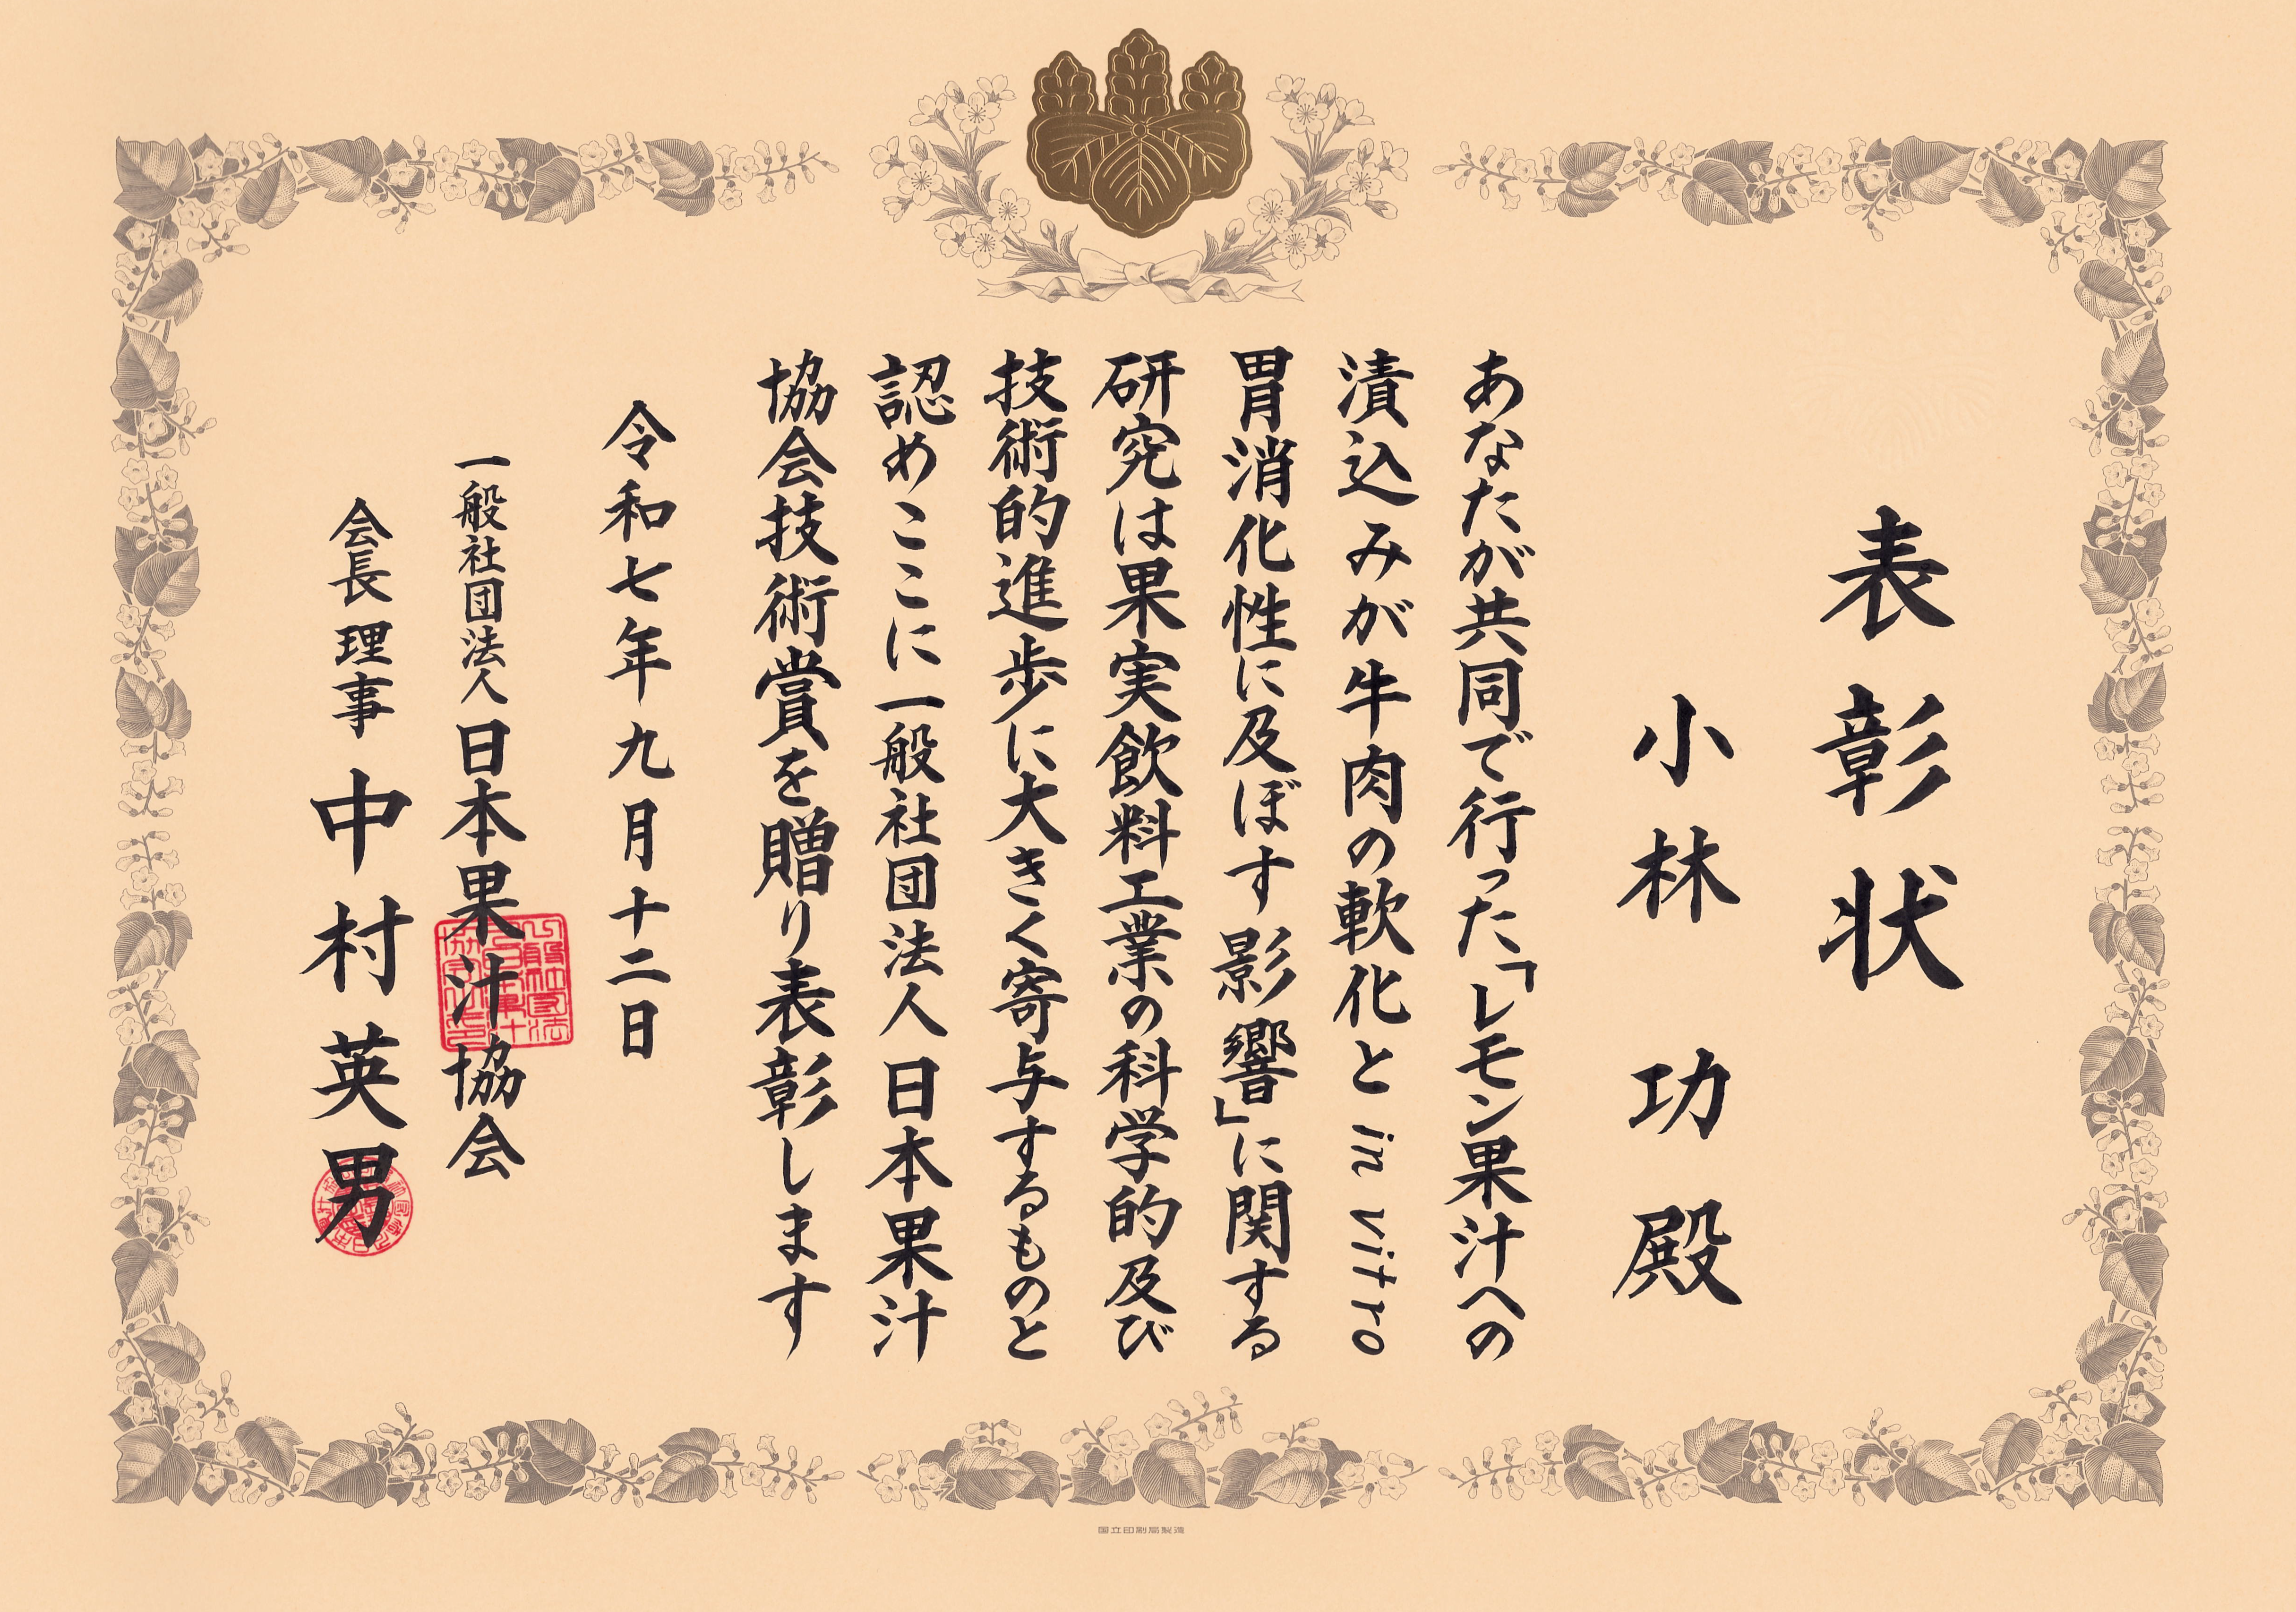 表彰状
小林 功 殿
あなたが共同で行った「レモン果汁への
漬込みが牛肉の軟化と in vitro
胃消化性に及ぼす影響」に関する
研究は果実飲料工業の科学的及び
技術的進歩に大きく寄与するものと
認めここに一般社団法人日本果汁
協会技術賞を贈り表彰します
令和七年九月十二日
一般社団法人 日本果汁協会
会長理事 中村英男
国立印刷局製造